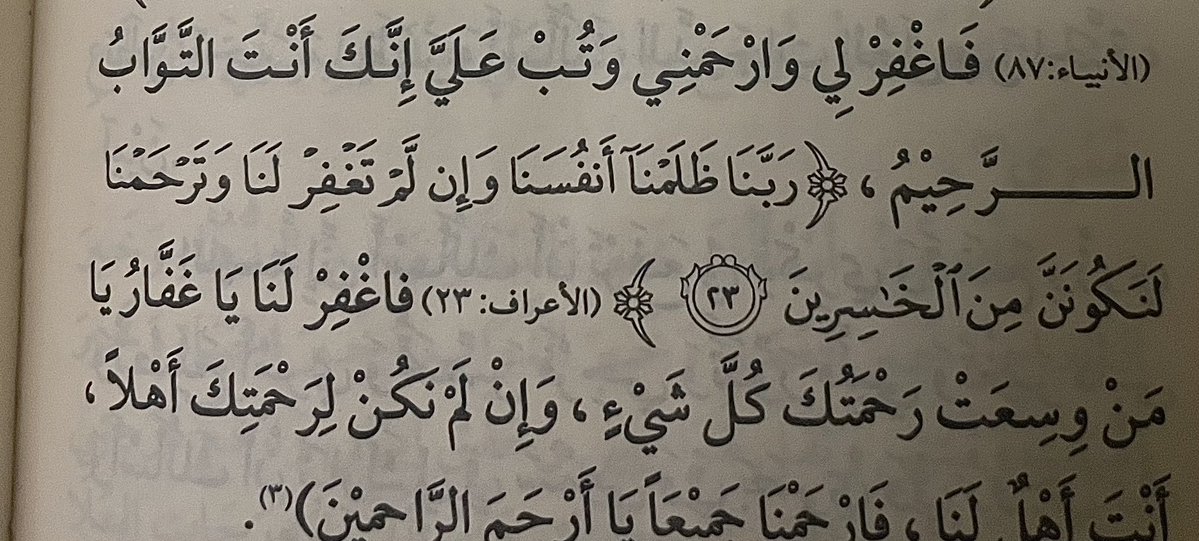 (الأنبياء:٨٧) فَاغْفِرْ لِي وَارْحَمْنِي وَتُبْ عَلَيَّ إِنَّكَ أَنْتَ التَّوَّابُ
الـــرَّحِيْمُ ، ﴿ رَبَّنَا ظَلَمْنَآ أَنفُسَنَا وَإِن لَّمْ تَغْفِرْ لَنَا وَتَرْحَمْنَا
لَنَكُونَنَّ مِنَ ٱلْخَٰسِرِينَ ٢٣ ﴾ (الأعراف: ٢٣) فاغْفِرْ لَنَا يَا غَفَّارُ يَا
مَنْ وِسِعَتْ رَحْمَتُكَ كُلَّ شَيْءٍ ، وَإِنْ لَمْ نَكُنْ لِرَحْمَتِكَ أَهْلاً ،
أَنْتَ أَهْلٌ لَنَا ، فَارْحَمْنَا جَمِيْعَاً يَا أَرْحَمَ الرَّاحِمِيْنَ)(٣).